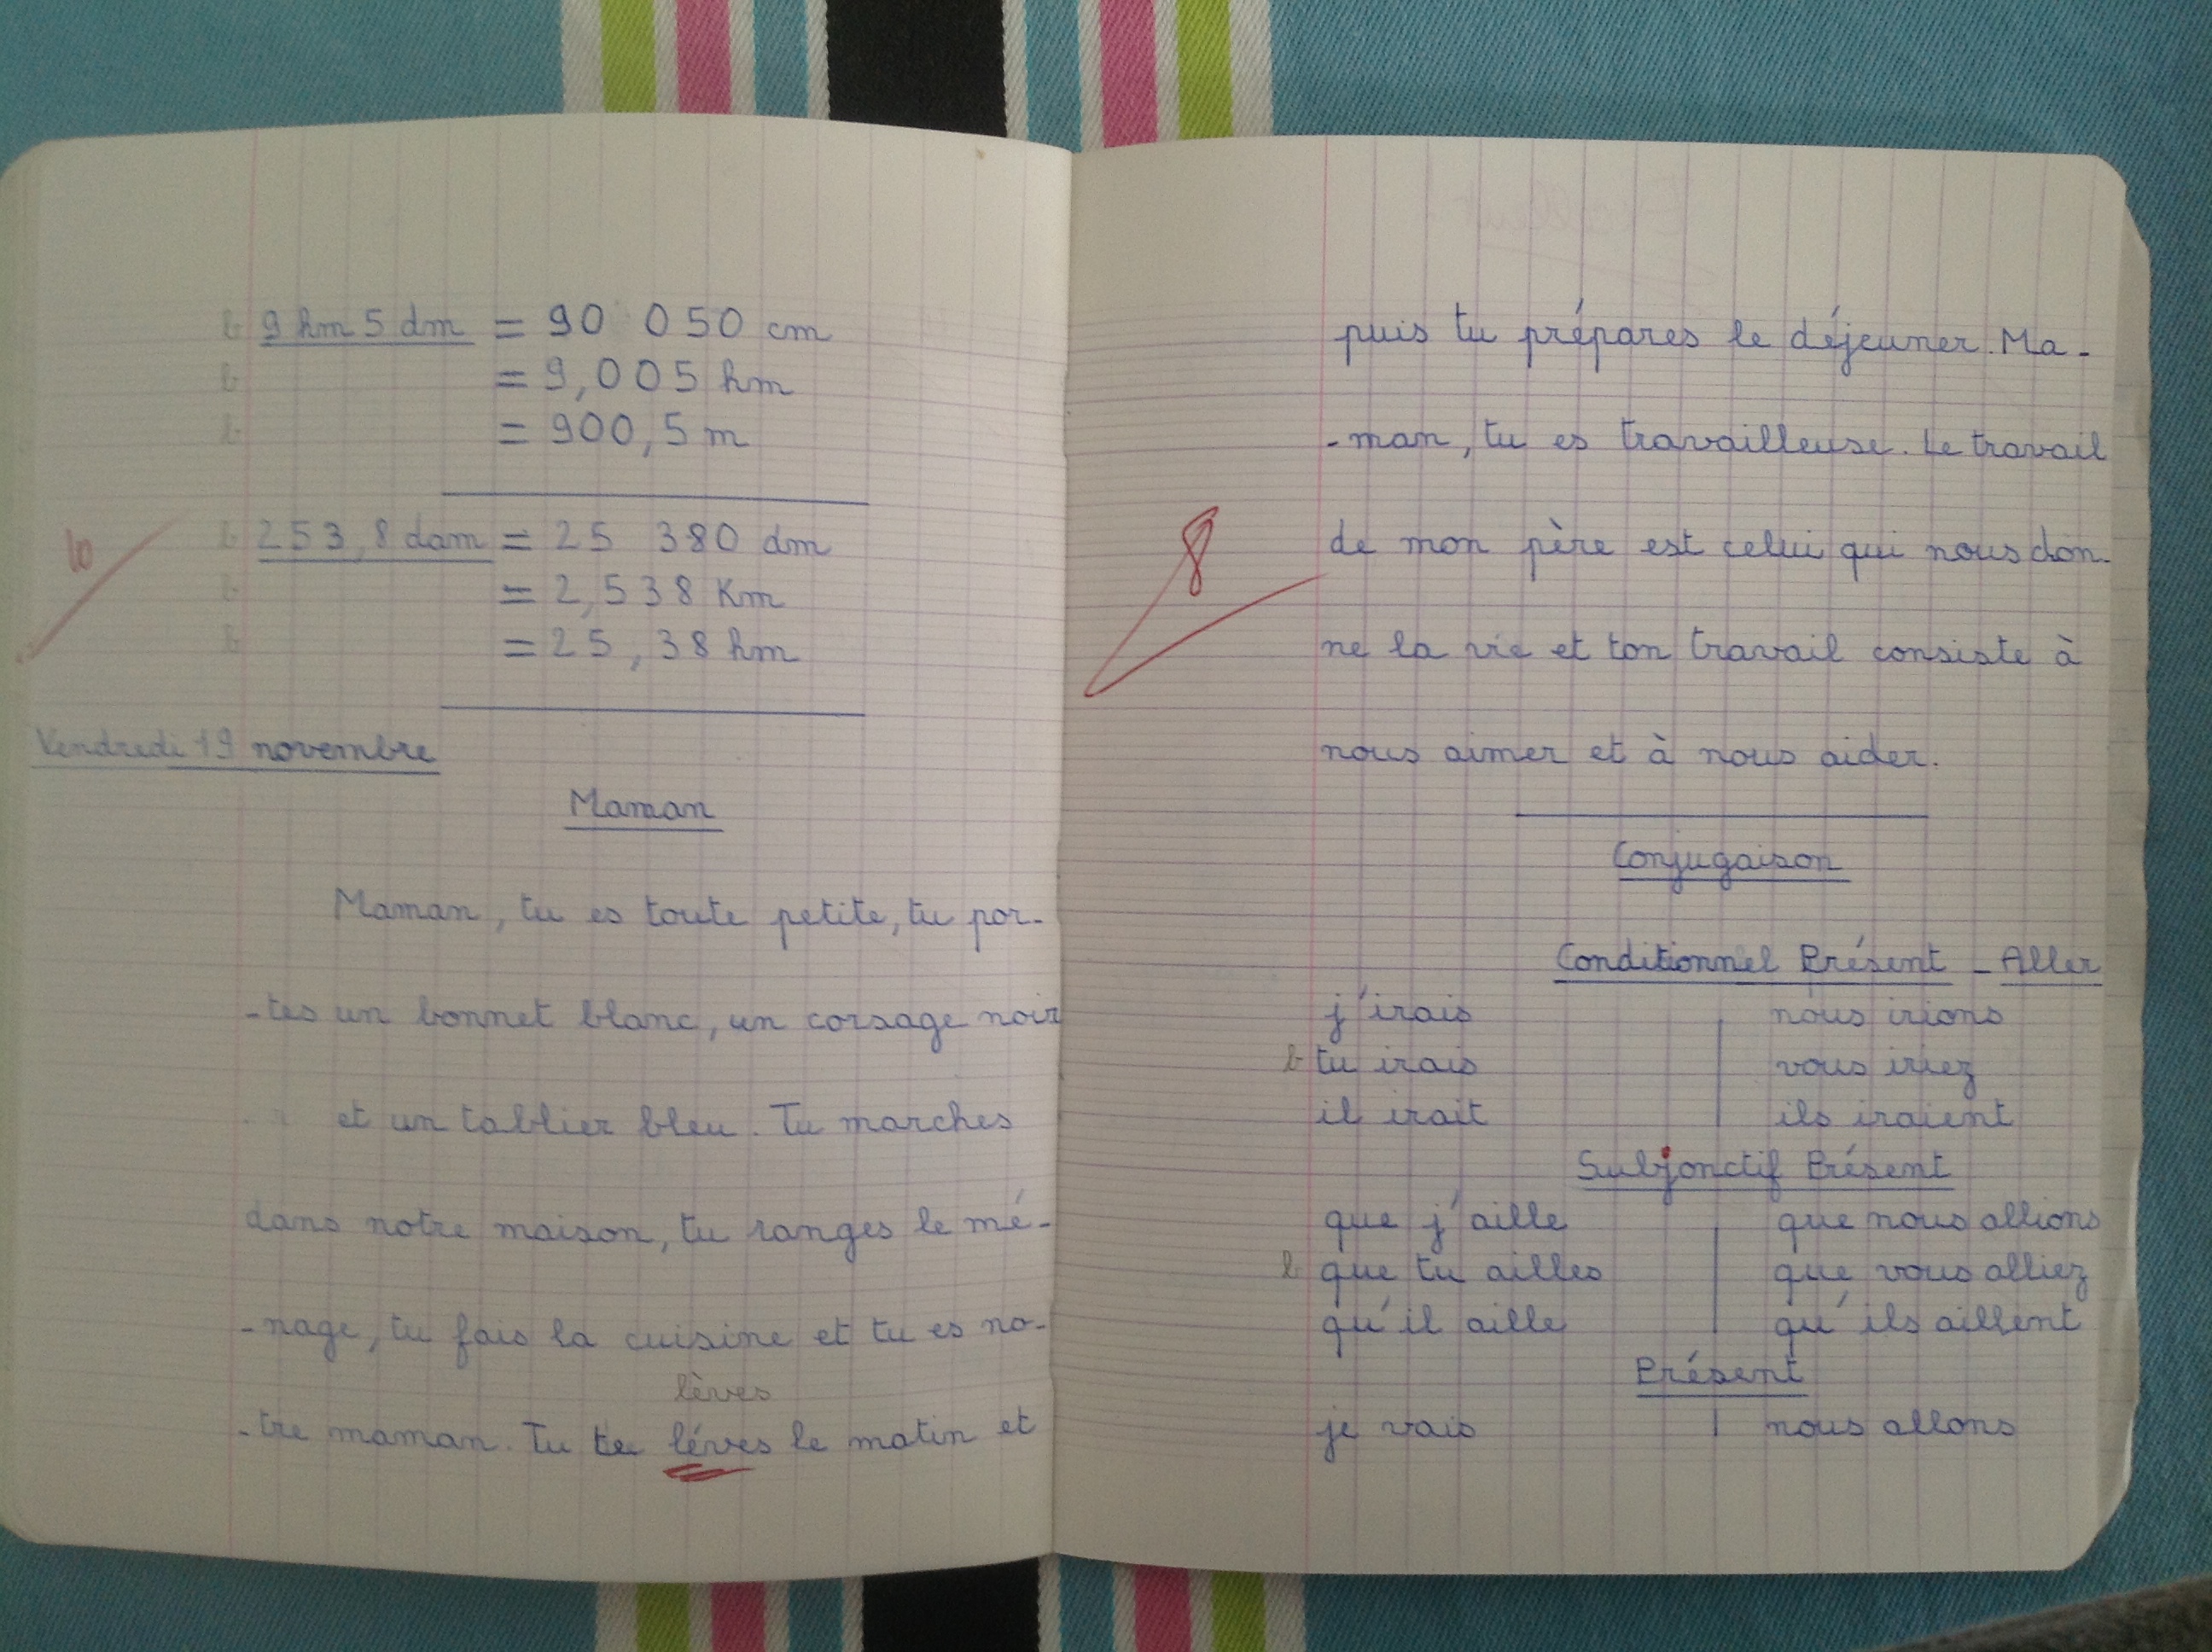 b 9 hm 5 dm = 90 050 cm
b = 9,005 hm
b = 900,5 m
10
b 253,8 dam = 25 380 dm
b = 2,538 Km
b = 25,38 hm
Vendredi 19 novembre
Maman
Maman, tu es toute petite, tu por-
-tes un bonnet blanc, un corsage noir
et un tablier bleu. Tu marches
dans notre maison, tu ranges le mé-
-nage, tu fais la cuisine et tu es no-
lèves
-tre maman. Tu te léves le matin et
puis tu prépares le déjeuner. Ma-
-man, tu es travailleuse. Le travail
8
de mon père est celui qui nous don-
ne la vie et ton travail consiste à
nous aimer et à nous aider.
Conjugaison
Conditionnel Présent - Aller
j'irais nous irions
b tu irais vous iriez
il irait ils iraient
Subjonctif Présent
que j'aille que nous allions
b que tu ailles que vous alliez
qu'il aille qu'ils aillent
Présent
je vais nous allons